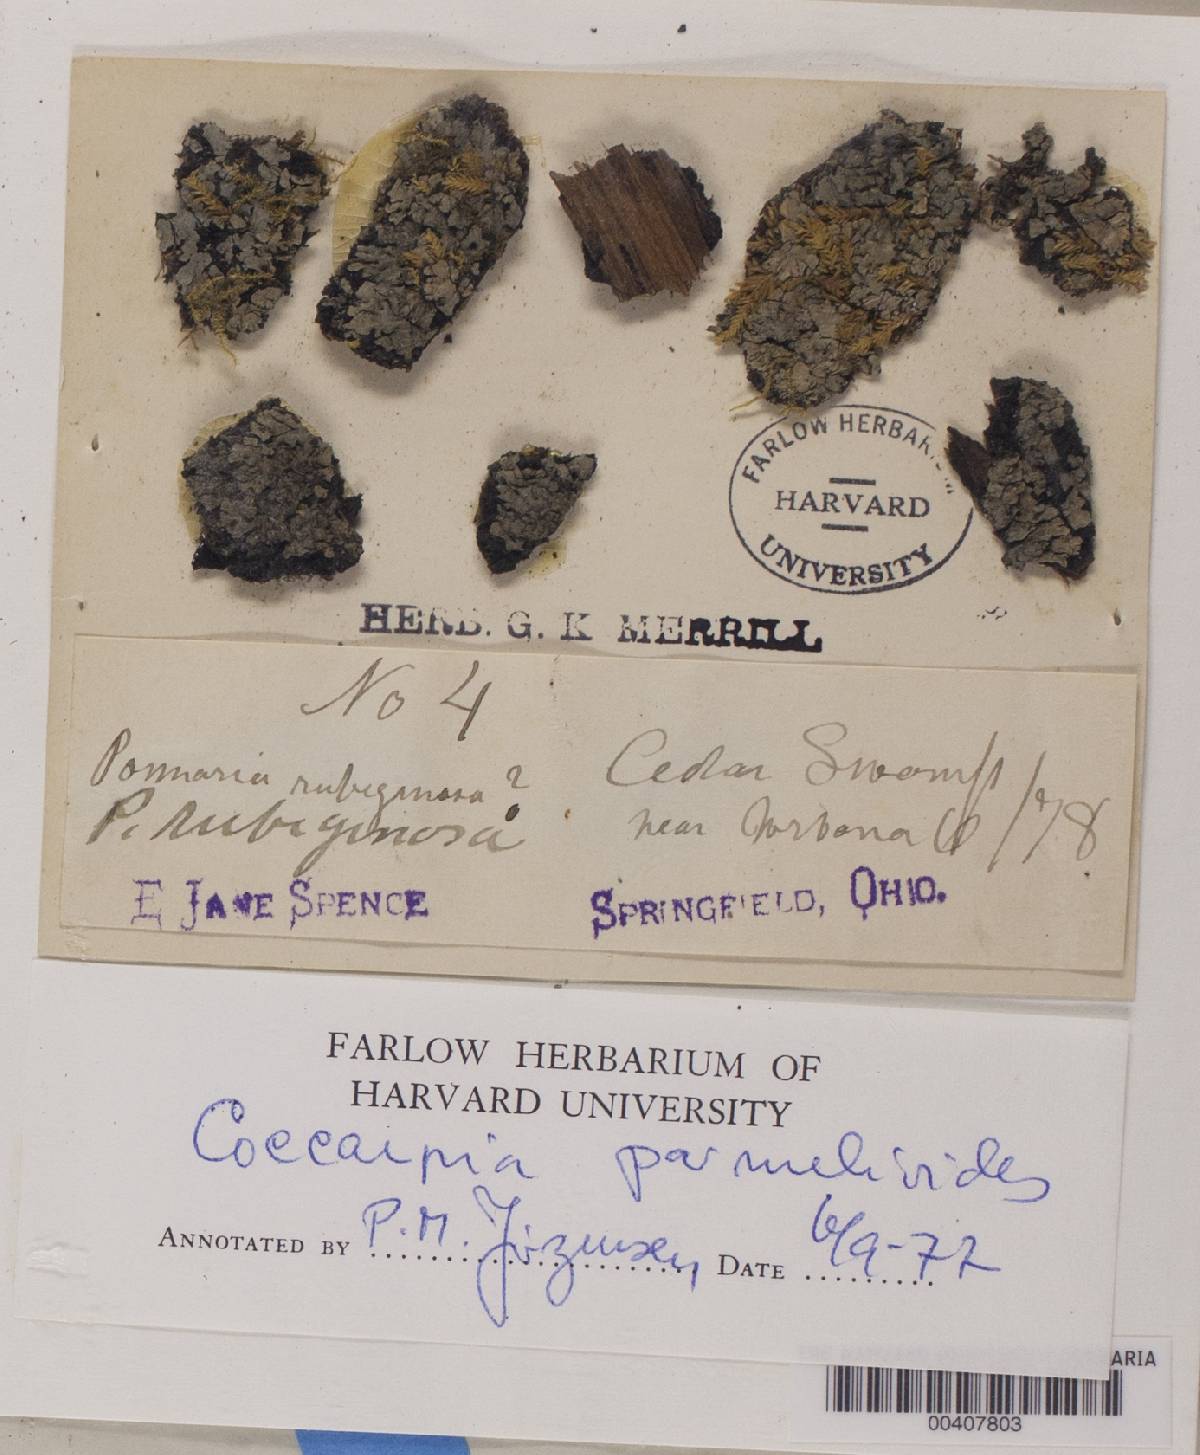 FARLOW HERBARI
HARVARD
UNIVERSITY
HERB. G. K MERRILL
No 4
Pannaria rubiginosa?
P. rubiginosa
Cedar Swamp
near Urbana O /78
E JANE SPENCE
SPRINGFIELD, OHIO.
FARLOW HERBARIUM OF
HARVARD UNIVERSITY
Coccarpia parmelioides
ANNOTATED BY P.M. Jørgensen DATE 6/9-72
ARIA
00407803